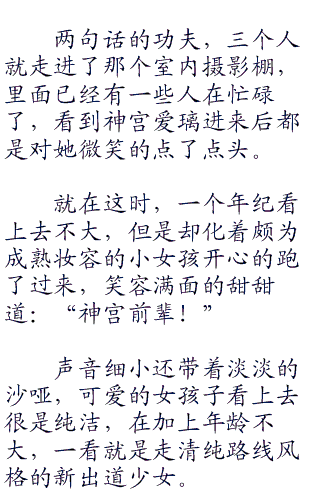 两句话的功夫，三个人
就走进了那个室内摄影棚，
里面已经有一些人在忙碌
了，看到神宫爱璃进来后都
是对她微笑的点了点头。
就在这时，一个年纪看
上去不大，但是却化着颇为
成熟妆容的小女孩开心的跑
了过来，笑容满面的甜甜
道：“神宫前辈！”
声音细小还带着淡淡的
沙哑，可爱的女孩子看上去
很是纯洁，在加上年龄不
大，一看就是走清纯路线风
格的新出道少女。